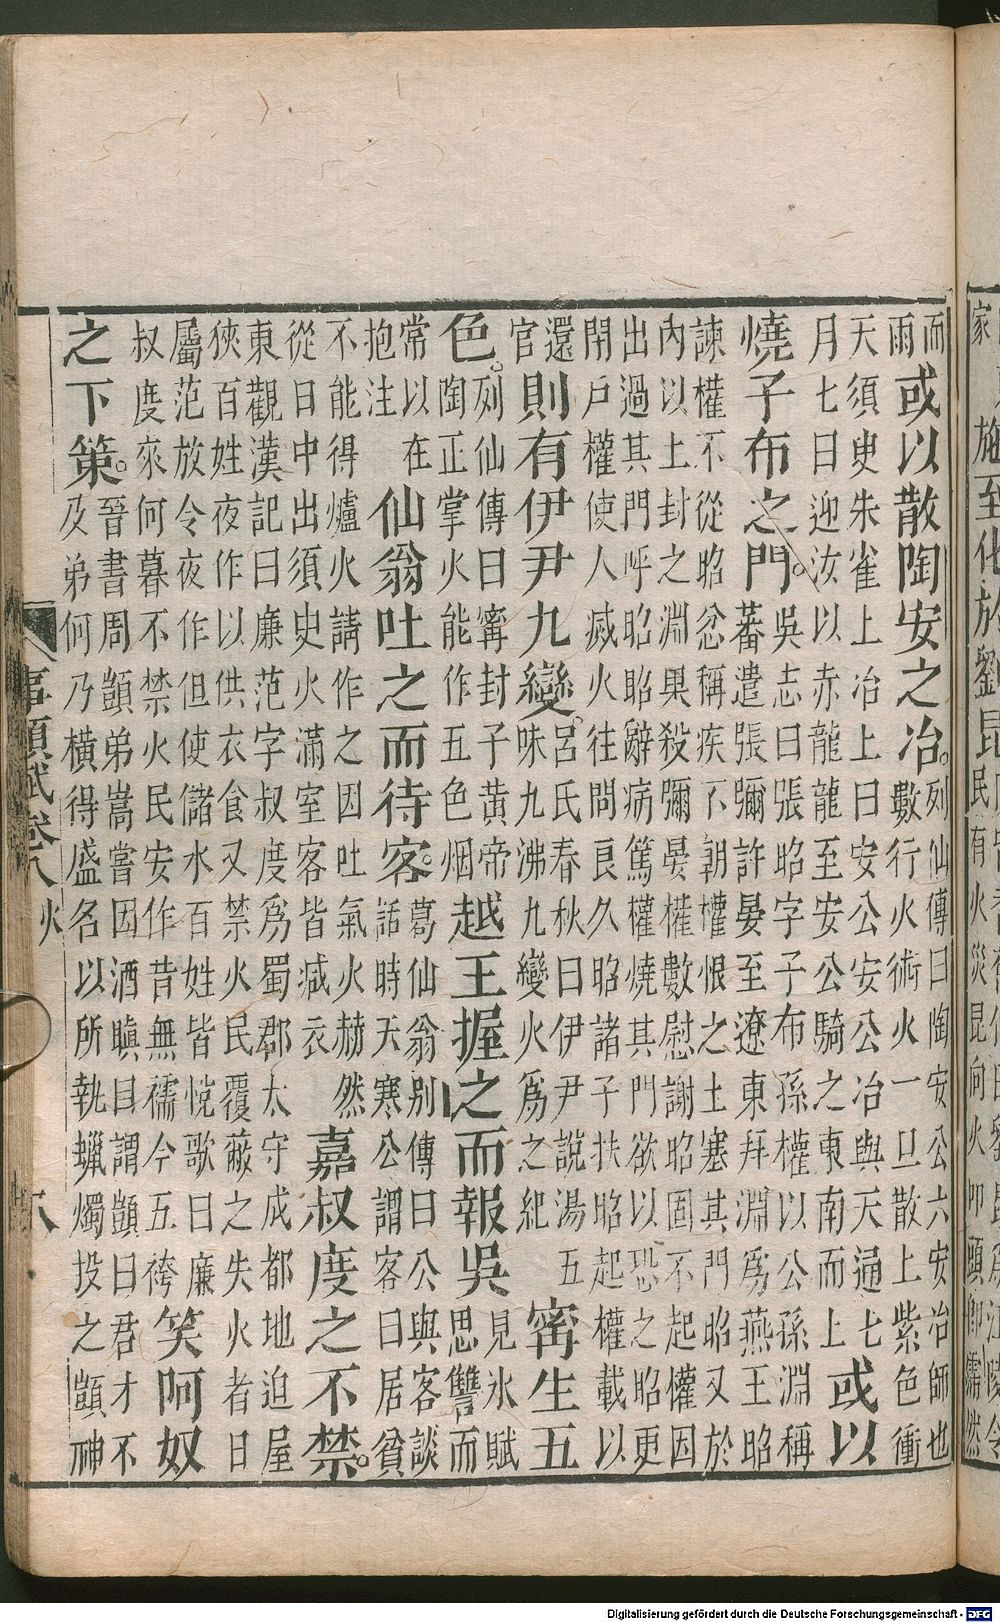 家
施至化於劉昆
民有火災昆向火叩頭
而
雨
或以散陶安之冶。
列仙傳曰陶安公六安冶師也
數行火術火一旦散上紫色衝
天須臾朱雀上冶上曰安公安公冶與天通七
月七日迎汝以赤龍龍至安公騎之東南而上
或以
燒子布之門。
吳志曰張昭字子布孫權以公孫淵稱
蕃遣張彌許晏至遼東拜淵爲燕王昭
諫權不從昭忿稱疾不朝權恨之土塞其門昭又於
內以土封之淵果殺彌晏權數慰謝昭固不起權因
出過其門呼昭昭辭病篤權燒其門欲以恐之昭更
閉戶權使人滅火往問良久昭諸子扶昭起權載以
還
官
則有伊尹九變。
呂氏春秋曰伊尹說湯五
味九沸九變火爲之紀
甯生五
色。
列仙傳曰甯封子黃帝
陶正掌火能作五色烟
越王握之而報吳
見氷賦
思讐而
常以在
抱注
仙翁吐之而待客。
葛仙翁別傳曰公與客談
話時天寒公謂客曰居貧
不能得爐火請作之因吐氣火赫然
從日中出須臾火滿室客皆減衣
嘉叔度之不禁。
東觀漢記曰廉范字叔度爲蜀郡太守成都地迫屋
狹百姓夜作以供衣食又禁火民覆蔽之失火者日
屬范放令夜作但使儲水百姓皆悅歌曰廉
叔度來何暮不禁火民安作昔無襦今五袴
笑阿奴
之下策。
晉書周顗弟嵩嘗因酒瞋目謂顗曰君才不
及弟何乃橫得盛名以所執蠟燭投之顗神
事類賦卷八 火
Digitalisierung gefördert durch die Deutsche Forschungsgemeinschaft - DFG